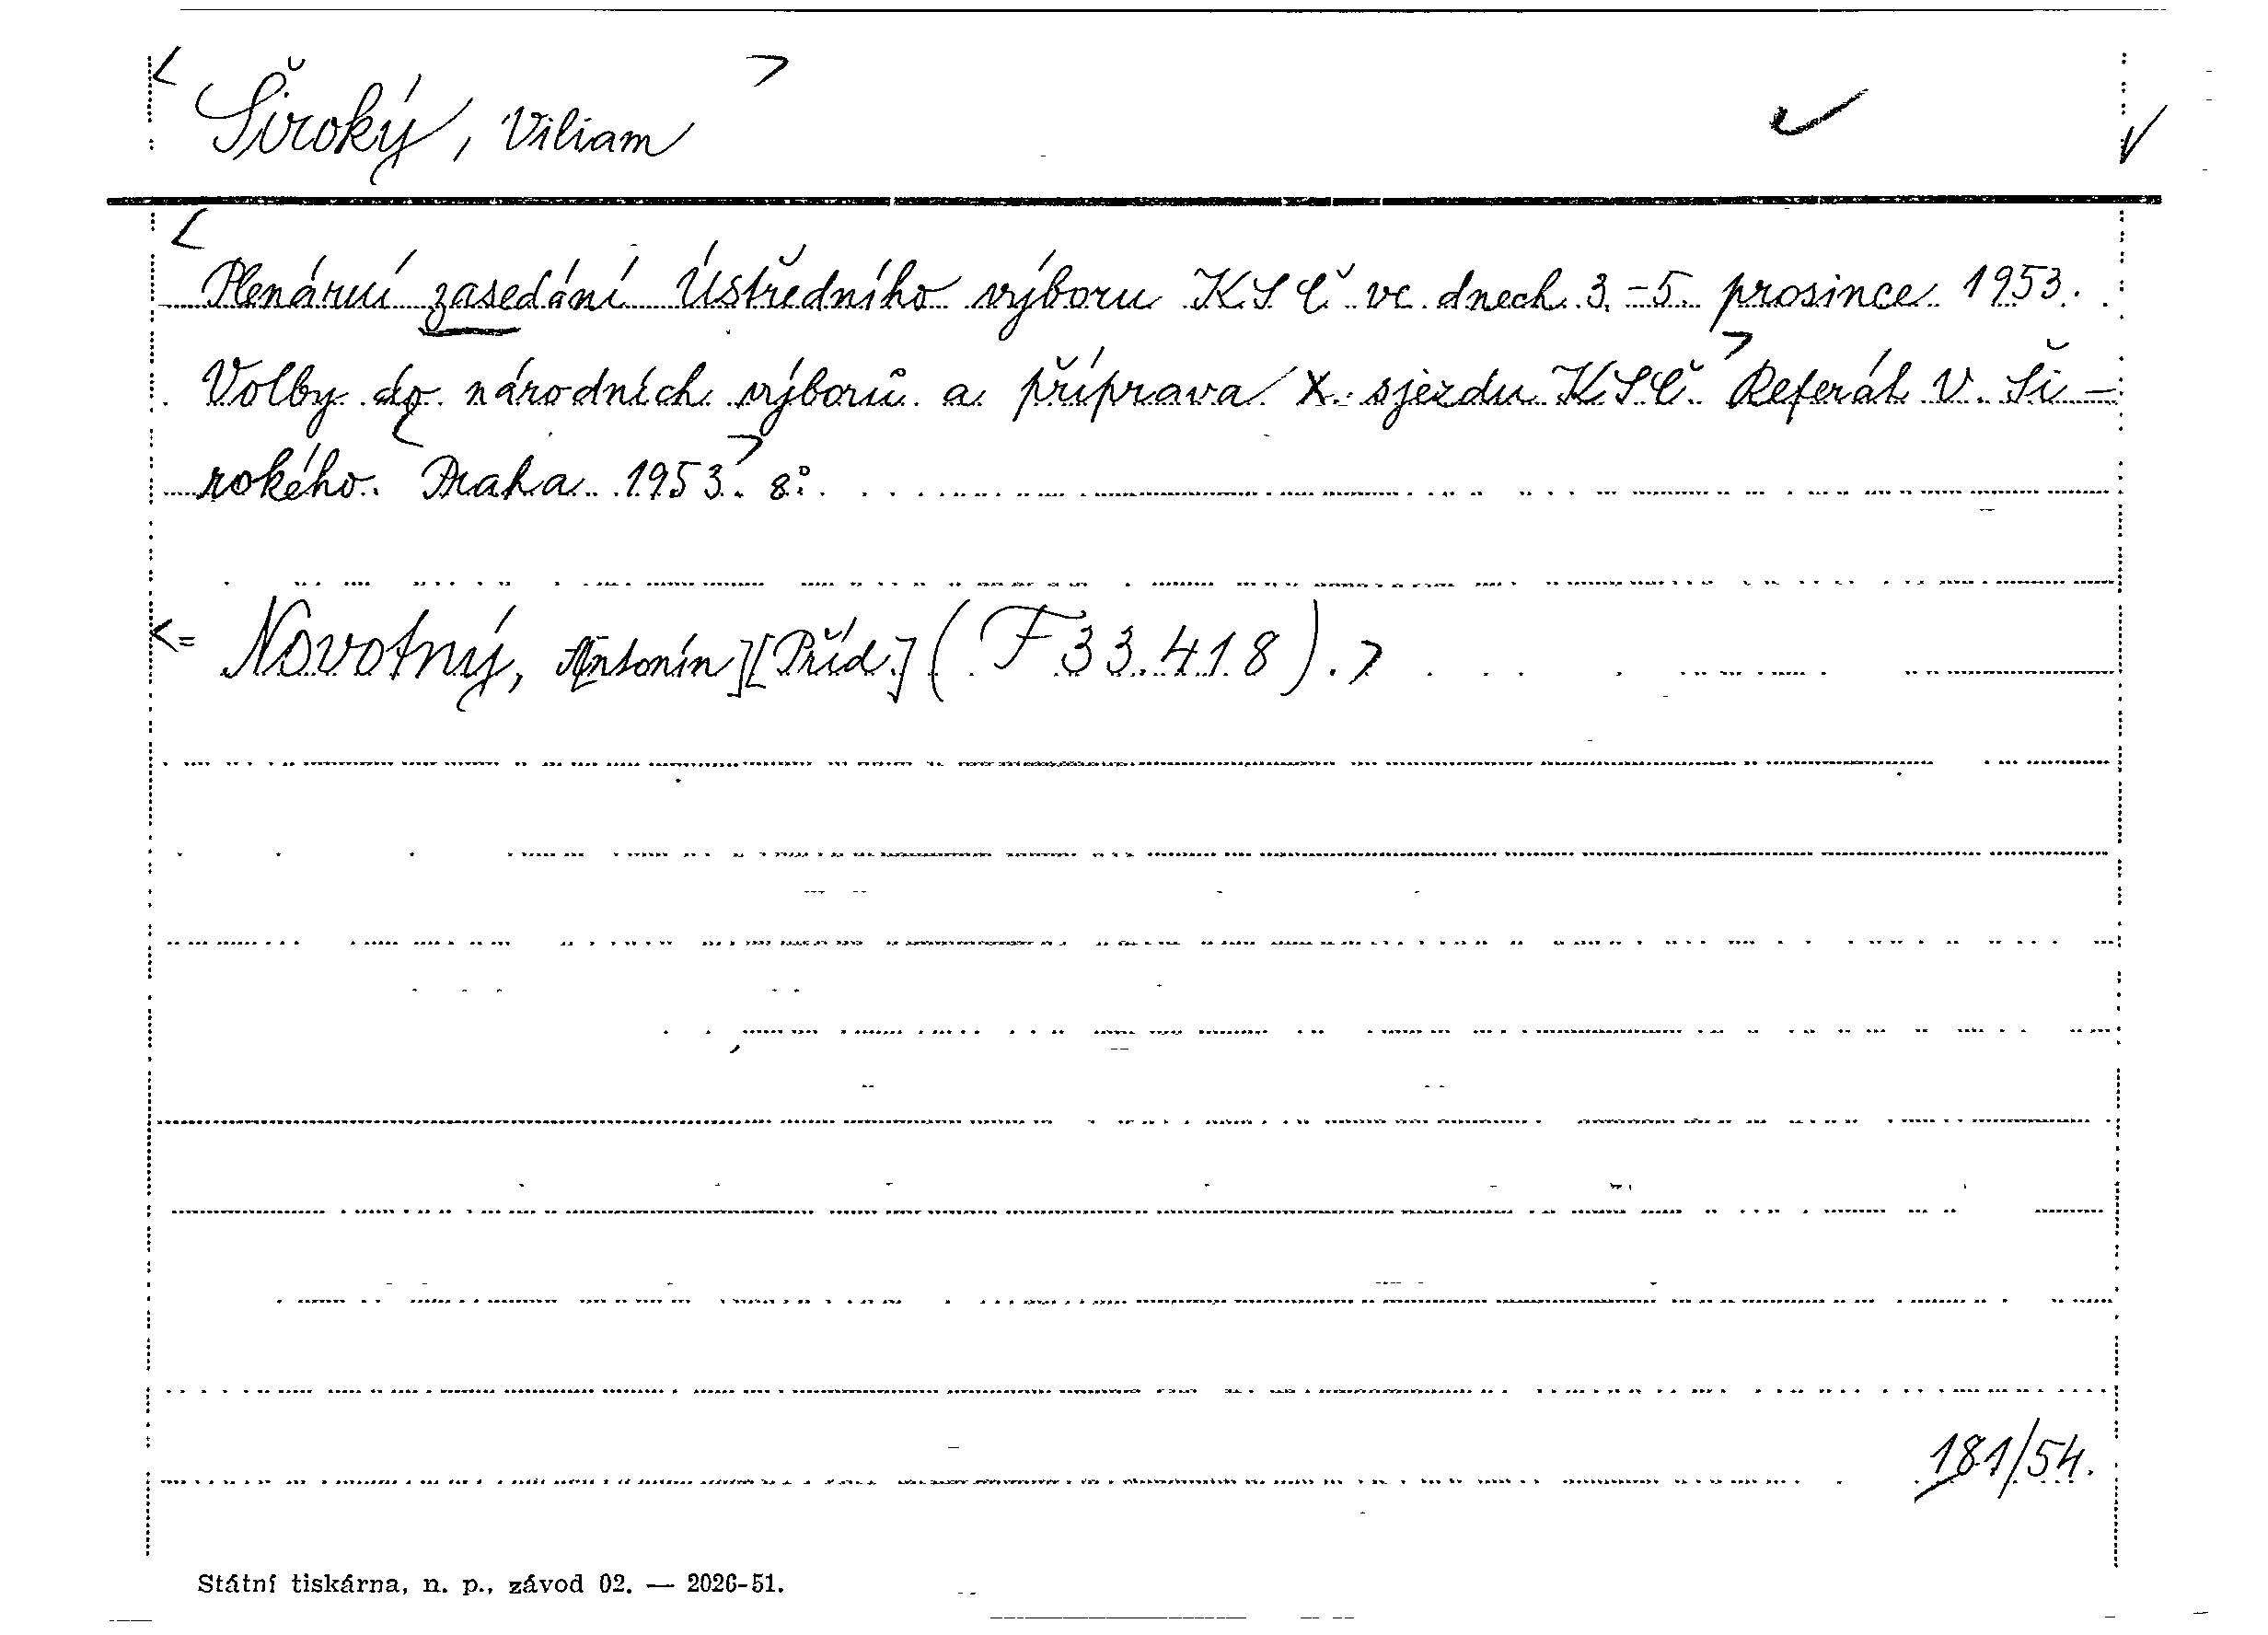 < Široký, Viliam >
< Plenární zasedání Ústředního výboru KSČ ve dnech 3.-5. prosince 1953.
Volby do národních výborů a příprava X. sjezdu KSČ > Referát V. Ši-
rokého. < Praha 1953. > 8°.
<= Novotný, A[ntonín] [Příd.] (F 33.418). >
181/54.
Státní tiskárna, n. p., závod 02. — 2026-51.